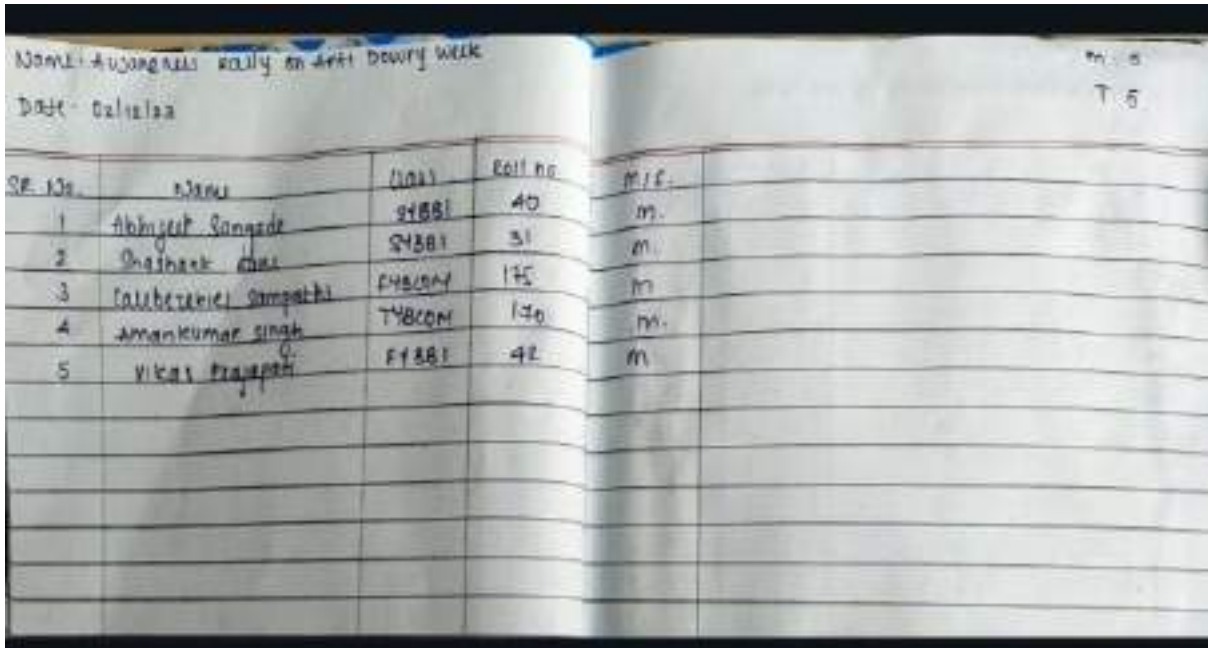 Name: Awareness rally on Anti Dowry week
m. 5
Date - 02/12/23
T 5
SR. No. Name Class Roll no M/F.
1 Abhijeet Sangade SYBBI 40 m.
2 Shashank SYBBI 31 m.
3 Sampathi FYBCOM 175 m
4 Amankumar Singh TYBCOM 170 m.
5 Vikas Prajapati FYBBI 42 m